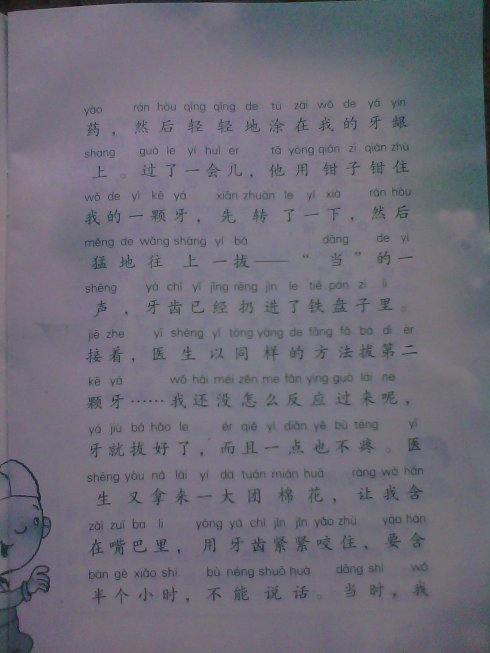 yào rán hòu qīng qīng de tú zài wǒ de yá yín
药，然后轻轻地涂在我的牙龈
shàng guò le yí huì er tā yòng qián zi qián zhù
上。过了一会儿，他用钳子钳住
wǒ de yì kē yá xiān zhuàn le yí xià rán hòu
我的一颗牙，先转了一下，然后
měng de wǎng shàng yì bá dāng de yì
猛地往上一拔——“当”的一
shēng yá chǐ yǐ jīng rēng jìn le tiě pán zi lǐ
声，牙齿已经扔进了铁盘子里。
jiē zhe yī shēng yǐ tóng yàng de fāng fǎ bá dì èr
接着，医生以同样的方法拔第二
kē yá wǒ hái méi zěn me fǎn yìng guò lái ne
颗牙……我还没怎么反应过来呢，
yá jiù bá hǎo le ér qiě yì diǎn yě bù téng yī
牙就拔好了，而且一点也不疼。医
shēng yòu ná lái yí dà tuán mián huā ràng wǒ hán
生又拿来一大团棉花，让我含
zài zuǐ ba lǐ yòng yá chǐ jǐn jǐn yǎo zhù yào hán
在嘴巴里，用牙齿紧紧咬住，要含
bàn gè xiǎo shí bù néng shuō huà dāng shí wǒ
半个小时，不能说话。当时，我